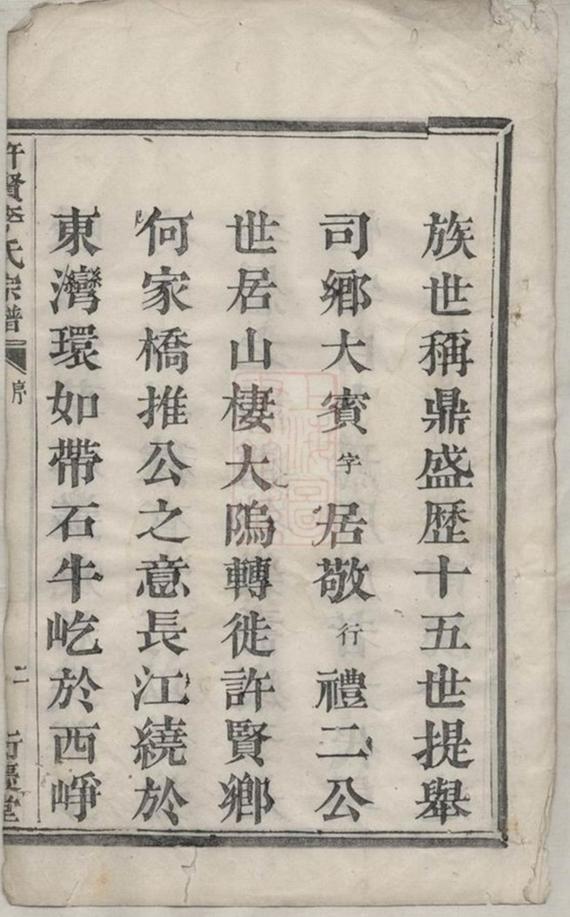 族世稱鼎盛歷十五世提舉
司鄉大賓字居敬行禮二公
世居山棲大隝轉徙許賢鄉
何家橋推公之意長江繞於
東灣環如帶石牛屹於西崢
許賢李氏宗譜
序
二